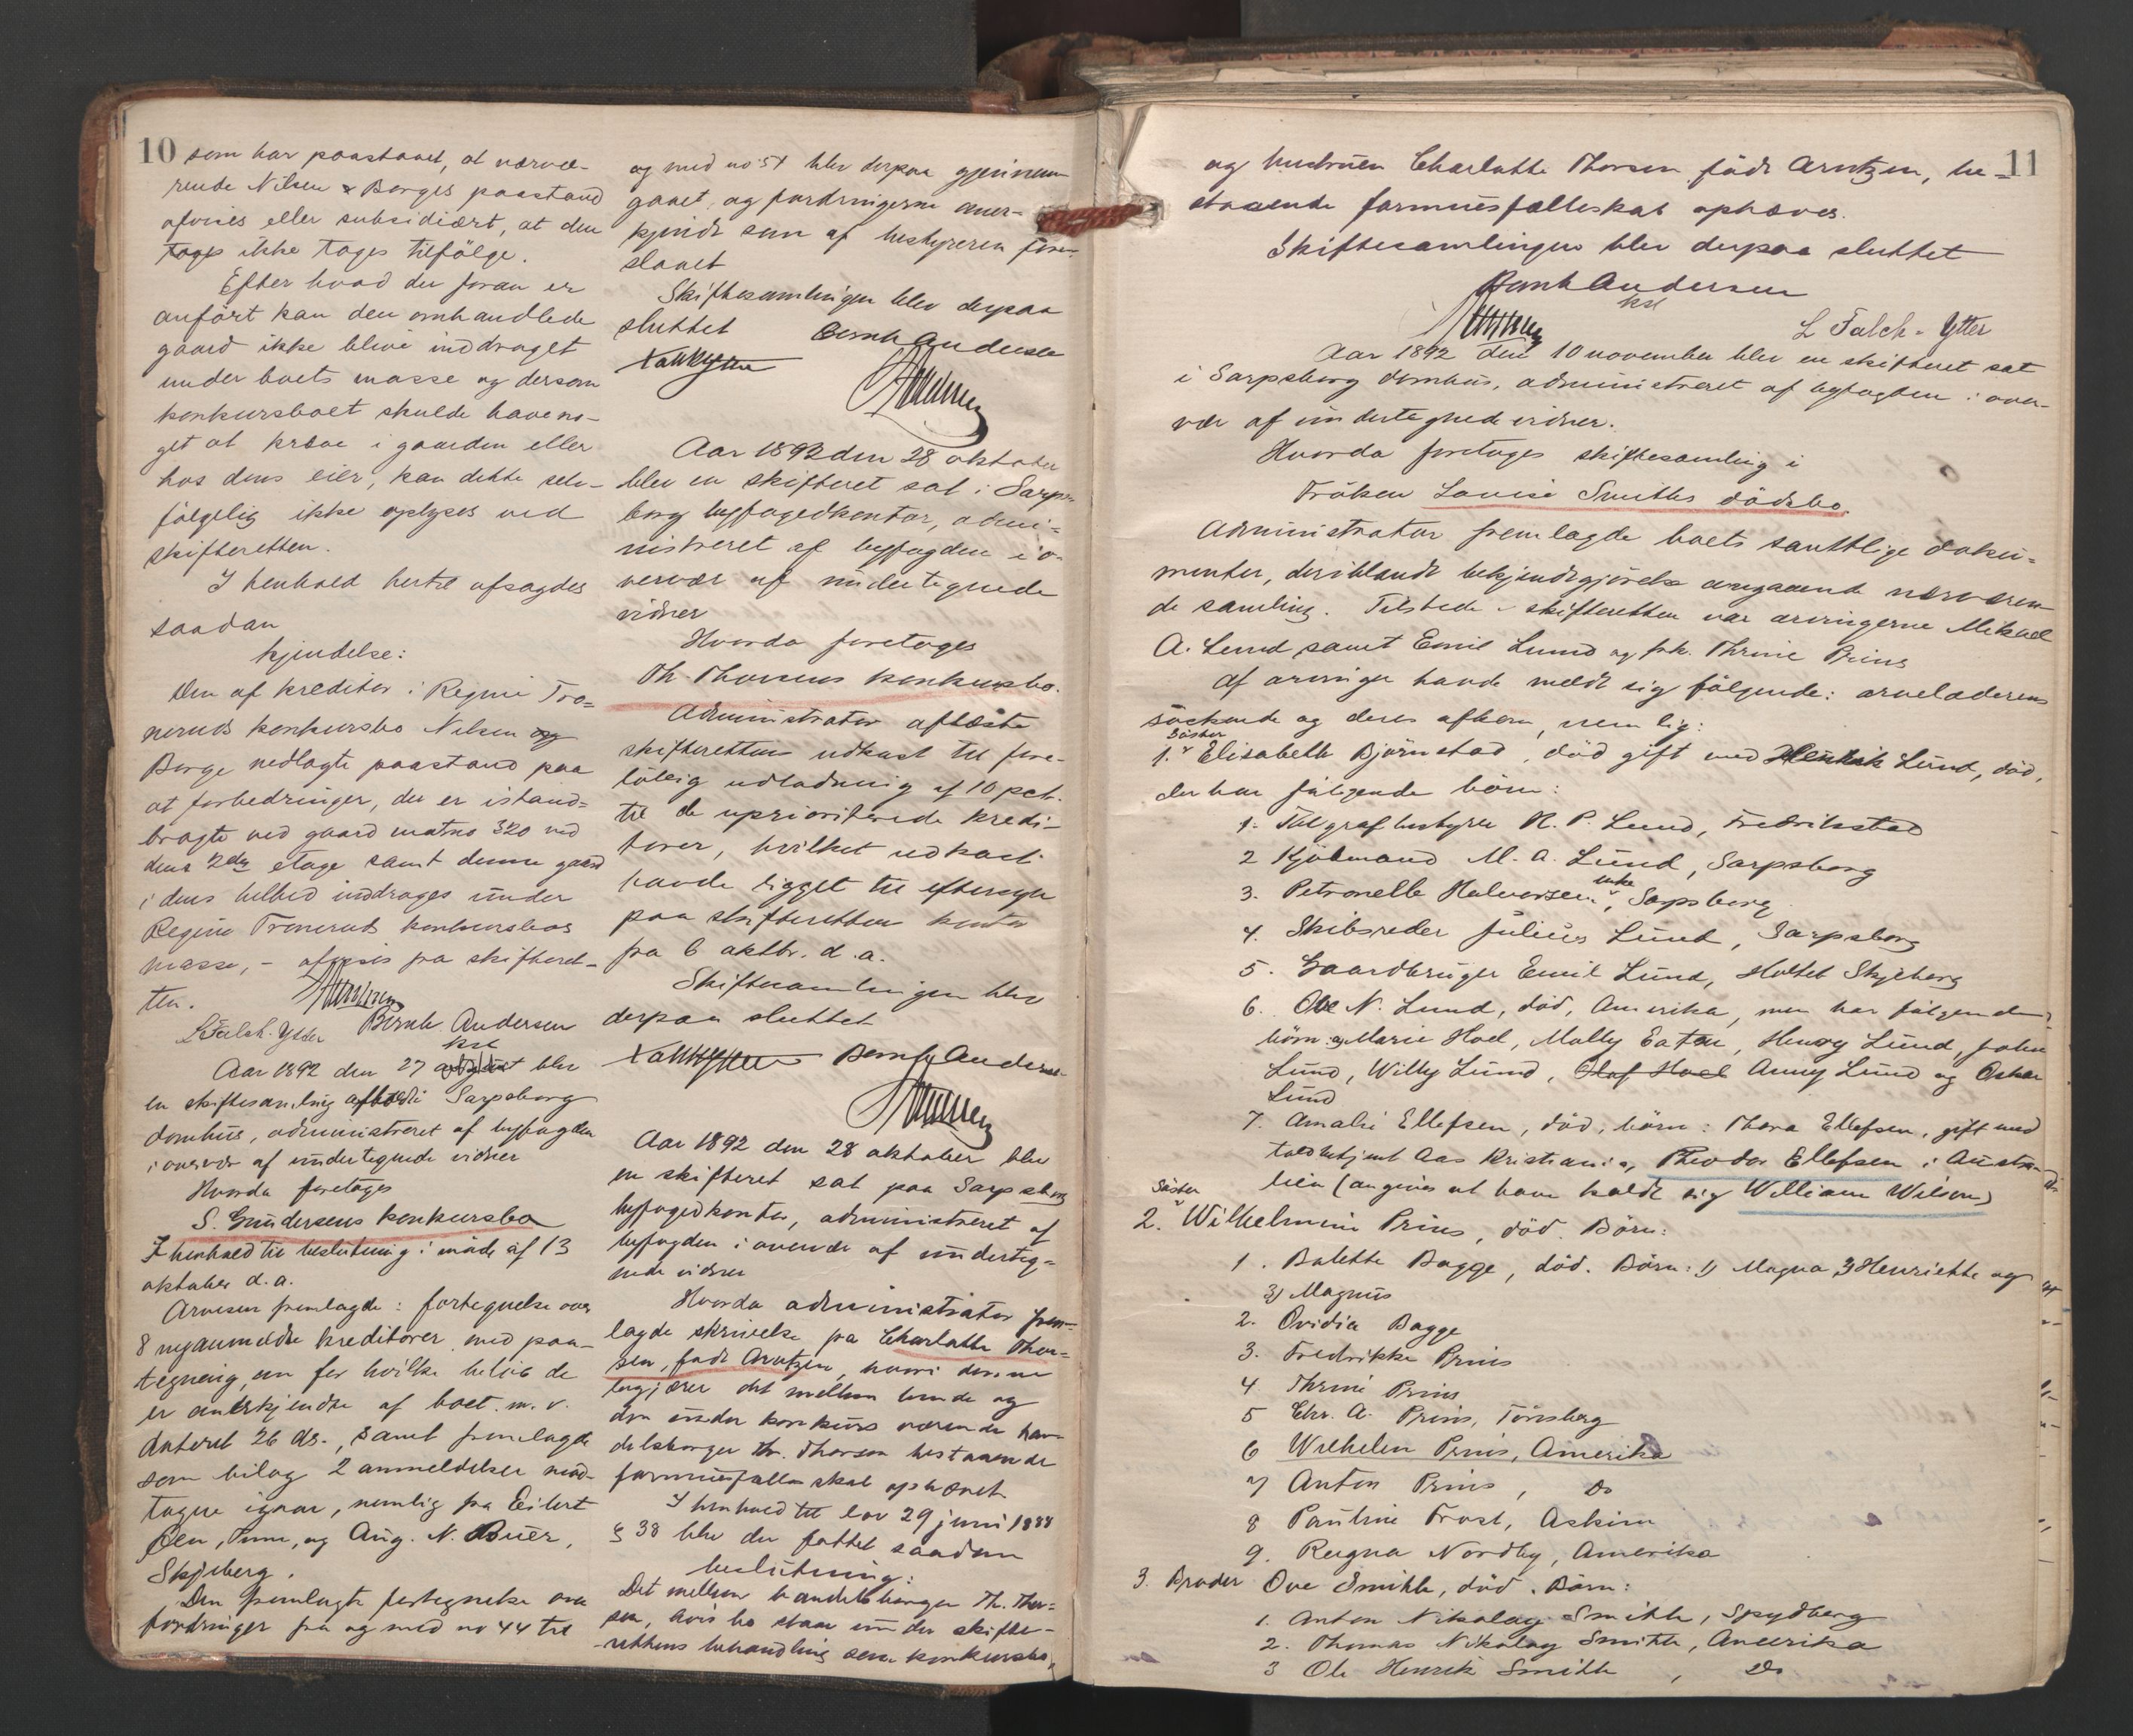 10
som har paastaaet, at nærvæ-
rende Nilsen & Borges paastand
afvises eller subsidiært, at den
tages ikke tages tilfölge.
Efter hvad der foran er
anfört kan den omhandlede
gaard ikke blive inddraget
under boets masse og dersom
konkursboet skulde have no-
get at kræve i gaarden eller
hos dens eier, kan dette selv-
fölgelig ikke oplyses ved
skifteretten.
I henhold hertil afsagdes
saadan
kjendelse:
Den af kreditor i Regine Tro-
neruds konkursbo Nilsen og
Borge nedlagte paastand paa
at forbedringer, der er istand-
bragte ved gaard matno 320 ved
dens 2den etage samt denne gaard
i dens helhed inddrages under
Regine Troneruds konkursbos
masse, - afvises fra skifteret-
ten.
L Falch-Ytter Bernh Andersen
kst
Aar 1892 den 27 oktober blev
en skiftesamling afholdt i Sarpsborg
domhus, administreret af byfogden
i overvær af undertegnede vidner
Hvorda foretoges
S. Gundersens konkursbo
I henhold til beslutning i möde af 13
oktober d.a.
Arnesen fremlagde: fortegnelse over
8 nyanmeldte kreditorer med paa-
tegning om for hvilke belöb de
er anerkjendte af boet m. v.
dateret 26 ds., samt fremlagde
som bilag 2 anmeldelser mod-
tagne igaar, nemlig fra Eilert
Olen, Tune, og Aug. N. Buer,
Skjeberg.
Den fremlagte fortegnelse over
fordringer fra og med no 44 til
og med no 51 blev derpaa gjennem-
gaaet, og fordringerne aner-
kjendt som af bestyreren fore-
slaaet
Skiftesamlingen blev derpaa
sluttet Bernh Andersen
Aar 1892 den 28 oktober
blev en skifteret sat i Sarps-
borg byfogedkontor, admi-
nistreret af byfogden i o-
vervær af undertegnede
vidner
Hvorda foretoges
Th. Thorsens konkursbo.
Administrator aflæste
skifterettens udkast til fore-
löbig udlodning af 10 pct.
til de uprioriterede kredi-
torer, hvilket udkast
havde ligget til eftersyn
paa skifterettens kontor
fra 6 oktbr. d.a.
Skiftesamlingen blev
derpaa sluttet
Bernh Andersen
Aar 1892 den 28 oktober blev
en skifteret sat paa Sarpsborg
byfogedkontor, administreret af
byfogden i overvær af underteg-
nede vidner
Hvorda administrator frem-
lagde skrivelse fra Charlotte Thor-
sen, födt Arntzen, hvori denne
begjærer det mellem hende og
den under konkurs værende han-
delsborger Th. Thorsen bestaaende
formuesfællesskab ophævet.
I henhold til lov 29 juni 1888
§ 38 blev der fattet saadan
beslutning:
Det mellem handelsborger Th. Thor-
sen, hvis bo staar under skifte-
rettens behandling som konkursbo,
11
og hustruen Charlotte Thorsen födt Arntzen, be-
staaende formuesfælleskab ophæves.
Skiftesamlingen blev derpaa sluttet
Bernh Andersen
kst
L Falch-Ytter
Aar 1892 den 10 november blev en skifteret sat
i Sarpsborg domhus, administreret af byfogden i over-
vær af undertegnede vidner.
Hvorda foretoges skiftesamling i
Fröken Lovise Smiths dödsbo.
Administrator fremlagde boets samtlige doku-
menter, deriblandt bekjendtgjörelse angaaende nærværen-
de samling. Tilstede i skifteretten var arvingerne Mikael
A. Lund samt Emil Lund og frk. Thrine Prins
Af arvinger havde meldt sig fölgende: arveladerens
söskende og deres afkom, nemlig:
Söster
1. Elisabeth Björnstad, död gift med Henrik Lund, död,
der har fölgende börn:
1. Telegrafbestyrer N. P. Lund, Fredrikstad
2 Kjöbmand M. A. Lund, Sarpsborg
3. Petronelle Halvorsen enke, Sarpsborg
4. Skibsreder Julius Lund, Sarpsborg
5. Gaardbruger Emil Lund, Holtet Skjeberg
6. Ole N. Lund, död, Amerika, men har fölgende
börn: Marie Hoel, Molly Eaton, Henry Lund, John
Lund, Willy Lund, Olaf Hoel Anny Lund og Oskar
Lund
7. Amalie Ellefsen, död, börn: Thora Ellefsen, gift med
toldbetjent Aas Kristiania, Theodor Ellefsen i Austra-
lien (angives at have kaldt sig William Wilson)
Söster
2. Wilhelmine Prins, död. Börn:
1. Bolette Bagge, död. Börn: 1) Magna 2) Henriette og
3) Magnus
2. Ovidia Bagge
3. Fredrikke Prins
4 Thrine Prins
5 Chr. A. Prins, Tönsberg
6 Wilhelm Prins, Amerika
7 Anton Prins, Do
8 Pauline Frost, Askim
9. Ragna Nordby, Amerika
3. Broder Ove Smith, död. Börn:
1. Anton Nikolay Smith, Spydberg
2. Thomas Nikolay Smith, Amerika
3 Ole Henrik Smith, Do